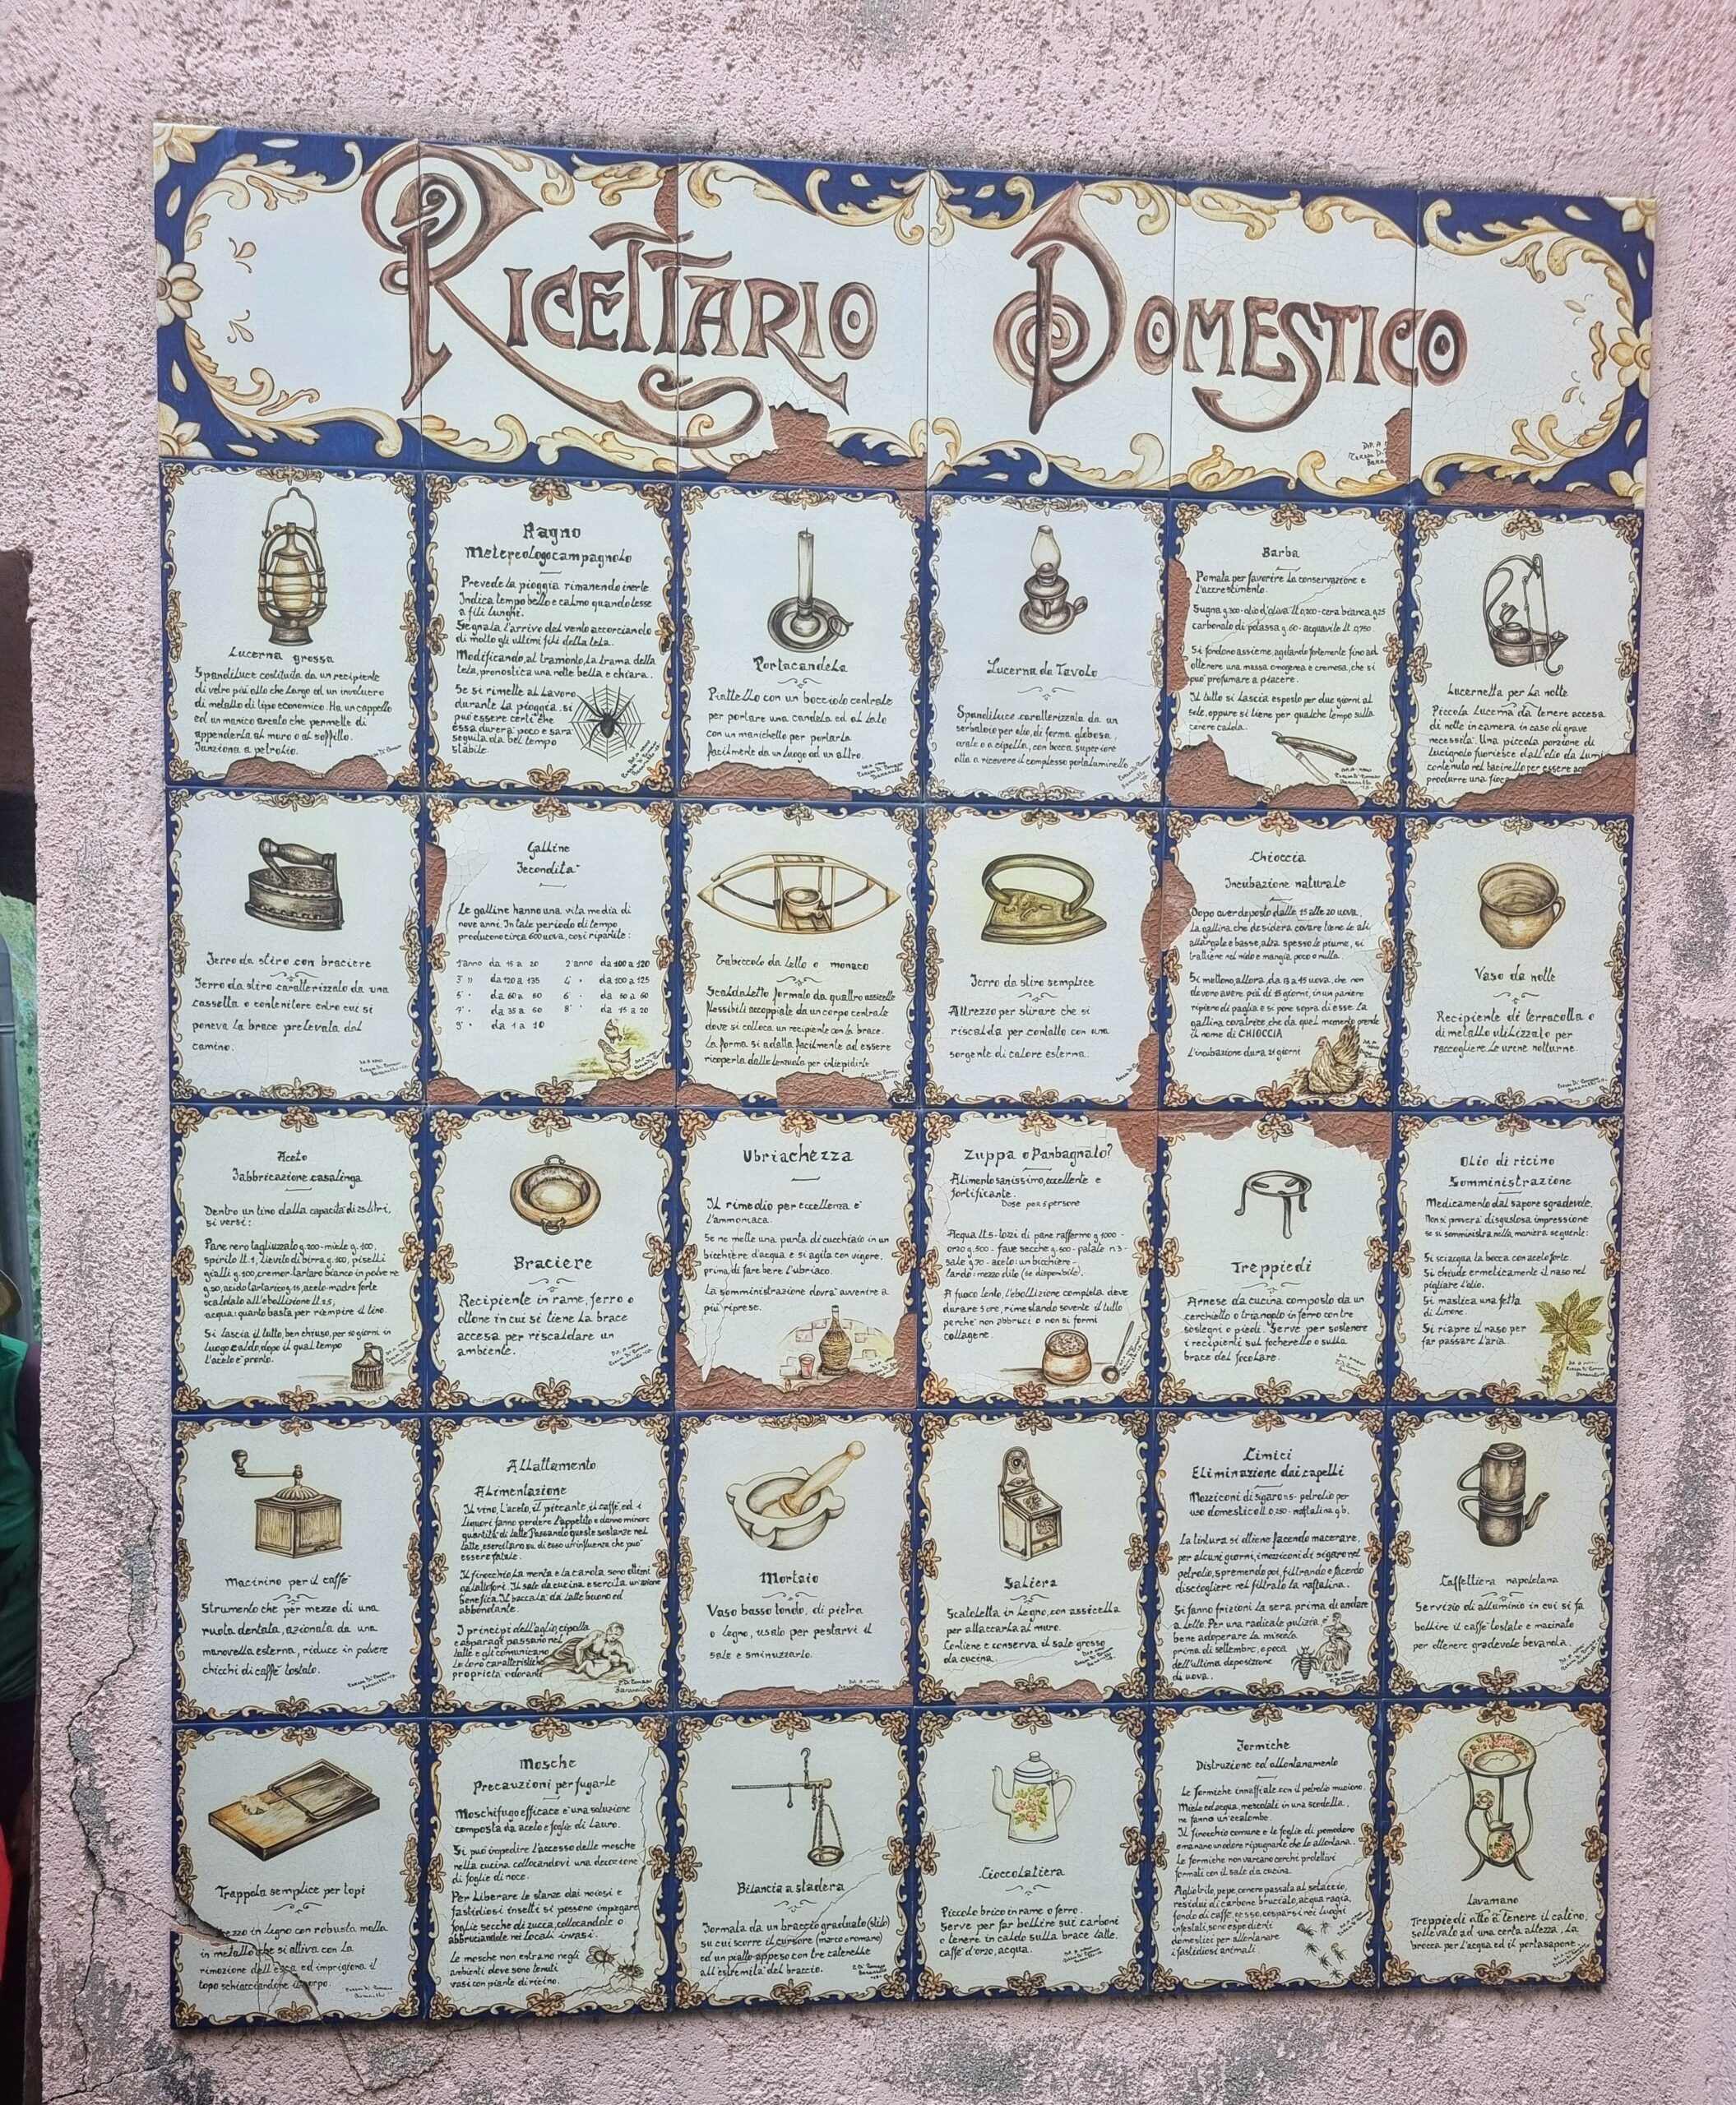 Ricettario Domestico
Lucerna grossa
Spandiluce costituita da un recipiente
di vetro più alto che largo ed un involucro
di metallo di tipo economico. Ha un cappello
ed un manico arcato che permette di
appenderla al muro o al soffitto.
Funziona a petrolio.
Ragno
Metereologo campagnolo
Prevede la pioggia rimanendo inerte
Indica tempo bello e calmo quando tesse
a fili lunghi.
Segnala l'arrivo del vento accorciando
di molto gli ultimi fili della tela.
Modificando, al tramonto, la trama della
tela, pronostica una notte bella e chiara.
Se si rimette al lavoro
durante la pioggia, si
può essere certi che
essa durerà poco e sarà
seguita da bel tempo
stabile.
Portacandela
Piattello con un bocciolo centrale
per portare una candela ed al lato
con un manichello per portarla
facilmente da un luogo ad un altro.
Lucerna da Tavolo
Spandiluce caratterizzata da un
serbatoio per olio, di forma globosa,
ovale o a cipolla, con bocca superiore
atta a ricevere il complesso portaluminello
Barba
Pomata per favorire la conservazione e
l'accrescimento.
Sugna g.300 - olio d'oliva lt.0,200 - cera bianca g.25
carbonato di potassa g.60 - acquavite lt. 0,750.
Si fondono assieme, agitando fortemente fino ad
ottenere una massa omogenea e cremosa, che si
può profumare a piacere.
Il tutto si lascia esposto per due giorni al
sole, oppure si tiene per qualche tempo sulla
cenere calda.
Lucernetta per la notte
Piccola lucerna da tenere accesa
di notte in camera in caso di grave
necessità. Una piccola porzione di
lucignolo fuoriesce dall'olio da
contenuto nel bacinello per essere
produrre una
Ferro da stiro con braciere
Ferro da stiro caratterizzato da una
cassella o contenitore entro cui si
poneva la brace prelevata dal
camino.
Galline
Fecondità
Le galline hanno una vita media di
nove anni. In tale periodo di tempo
producono circa 600 uova, così ripartite:
1°anno da 15 a 20 2°anno da 100 a 120
3° " da 120 a 135 4° " da 100 a 125
5° " da 60 a 80 6° " da 50 a 60
7° " da 35 a 50 8° " da 15 a 20
9° " da 1 a 10
Trabiccolo da letto o monaco
Scaldaletto formato da quattro assicelle
flessibili accoppiate da un corpo centrale
dove si colloca un recipiente con la brace.
La forma si adatta facilmente ad essere
ricoperta dalle lenzuola per intiepidirle
Ferro da stiro semplice
Attrezzo per stirare che si
riscalda per contatto con una
sorgente di calore esterna.
Chioccia
Incubazione naturale
Dopo aver deposto dalle 15 alle 20 uova,
la gallina che desidera covare tiene le ali
allargate e basse, alza spesso le piume, si
trattiene nel nido e mangia poco o nulla.
Si mettono allora, da 13 a 15 uova, che non
devono avere più di 15 giorni, in un paniere
ripieno di paglia e si pone sopra di esse la
gallina covatrice, che da quel momento prende
il nome di CHIOCCIA
L'incubazione dura 21 giorni
Vaso da notte
Recipiente di terracotta o
di metallo utilizzato per
raccogliere le urine notturne.
Aceto
Fabbricazione casalinga
Dentro un tino dalla capacità di 25 litri,
si versi:
Pane nero tagliuzzato g.200 - miele g.100,
spirito lt.1, lievito di birra g.100, piselli
gialli g.100, cremor-tartaro bianco in polvere
g.50, acido tartarico g.15, aceto-madre forte
scaldato all'ebollizione lt.25,
acqua: quanto basta per riempire il tino.
Si lascia il tutto, ben chiuso, per 10 giorni in
luogo caldo, dopo il qual tempo
l'aceto è pronto.
Braciere
Recipiente in rame, ferro o
ottone in cui si tiene la brace
accesa per riscaldare un
ambiente.
Ubriachezza
Il rimedio per eccellenza è
l'ammoniaca.
Se ne mette una punta di cucchiaio in un
bicchiere d'acqua e si agita con vigore,
prima di fare bere l'ubriaco.
La somministrazione dovrà avvenire a
più riprese.
Zuppa o Panbagnato?
Alimento sanissimo, eccellente e
fortificante.
Dose per 5 persone
Acqua lt.5 - tozzi di pane raffermo g.1000 -
orzo g.500 - fave secche g.500 - patate n.3 -
sale g.70 - aceto: un bicchiere -
lardo: mezzo dito (se disponibile).
A fuoco lento, l'ebollizione completa deve
durare 5 ore, rimestando sovente il tutto
perché non abbruci o non si formi
collagene.
Treppiedi
Arnese da cucina composto da un
cerchietto o triangolo in ferro con tre
sostegni o piedi. Serve per sostenere
i recipienti sul focherello o sulla
brace del focolare.
Olio di ricino
Somministrazione
Medicamento dal sapore sgradevole.
Non si proverà disgustosa impressione
se si somministra nella maniera seguente:
Si sciacqua la bocca con aceto forte.
Si chiude ermeticamente il naso nel
pigliare l'olio.
Si mastica una fetta
di limone.
Si riapre il naso per
far passare l'aria.
Macinino per il caffè
Strumento che per mezzo di una
ruota dentata, azionata da una
manovella esterna, riduce in polvere
chicchi di caffè tostato.
Allattamento
Alimentazione
Il vino, l'aceto, il piccante, il caffè, ed i
liquori fanno perdere l'appetito e danno minore
quantità di latte. Passando queste sostanze nel
latte, esercitano su di esso un'influenza che può
essere fatale.
Il finocchio, la menta e la carota sono ottimi
galattofori. Il sale da cucina esercita un'azione
benefica. Il baccalà dà latte buono ed
abbondante.
I principi dell'aglio, cipolla
e asparagi passano nel
latte e gli comunicano
le loro caratteristiche
proprietà odoranti
Mortaio
Vaso basso tondo, di pietra
o legno, usato per pestarvi il
sale e sminuzzarlo.
Saliera
Scatoletta in legno, con assicella
per attaccarla al muro.
Contiene e conserva il sale grosso
da cucina.
Cimici
Eliminazione dai capelli
Mozziconi di sigaro n.5 - petrolio per
uso domestico lt.0,250 - naftalina g.6.
La tintura si ottiene facendo macerare,
per alcuni giorni, i mozziconi di sigaro nel
petrolio, spremendo poi, filtrando e facendo
disciogliere nel filtrato la naftalina.
Si fanno frizioni la sera prima di andare
a letto. Per una radicale pulizia è
bene adoperare la miscela
prima di settembre, epoca
dell'ultima deposizione
di uova.
Caffettiera napoletana
Servizio di alluminio in cui si fa
bollire il caffè tostato e macinato
per ottenere gradevole bevanda.
Trappola semplice per topi
in legno con robusta molla
in metallo che si attiva con la
rimozione dell'esca ed imprigiona il
topo schiacciandone il corpo.
Mosche
Precauzioni per fugarle
Moschifugo efficace è una soluzione
composta da aceto e foglie di lauro.
Si può impedire l'accesso delle mosche
nella cucina collocandovi una decozione
di foglie di noce.
Per liberare le stanze dai noiosi e
fastidiosi insetti si possono impiegare
foglie secche di zucca, collocandole o
abbruciandole nei locali invasi.
Le mosche non entrano negli
ambienti dove sono tenuti
vasi con piante di ricino.
Bilancia a stadera
Formata da un braccio graduato (stilo)
su cui scorre il cursore (marco o romano)
ed un piatto appeso con tre catenelle
all'estremità del braccio.
Cioccolatiera
Piccolo brico in rame o ferro.
Serve per far bollire sui carboni
o tenere in caldo sulla brace latte,
caffè d'orzo, acqua.
Formiche
Distruzione ed allontanamento
Le formiche innaffiate con il petrolio muoiono.
Miele ed acqua, mescolati in una scodella,
ne fanno un'ecatombe.
Il finocchio comune e le foglie di pomodoro
emanano un odore ripugnante che le allontana.
Le formiche non varcano cerchi protettivi
formati con il sale da cucina.
Aglio trito, pepe, cenere passata al setaccio,
residui di carbone bruciato, acqua ragia,
fondo di caffè, gesso, cosparsi nei luoghi
infestati, sono espedienti
domestici per allontanare
i fastidiosi animali.
Lavamano
Treppiedi atto a tenere il catino,
sollevato ad una certa altezza, la
brocca per l'acqua ed il portasapone.